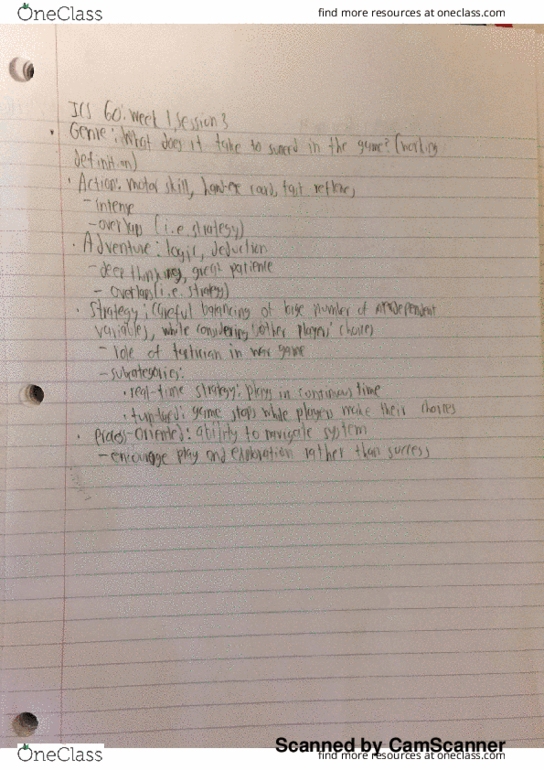 OneClass
find more resources at oneclass.com
ICS 60: Week 1, Session 3
• Genre: What does it take to succeed in the game? (working
definition)
• Action: motor skill, hand-eye coord, fast reflexes
- intense
- overlaps (i.e. strategy)
• Adventure: logic, deduction
- deep thinking, great patience
- overlaps (i.e. strategy)
• Strategy: careful balancing of large number of interdependent
variables, while considering other players' choices
- role of tactician in war game
- subcategories:
• real-time strategy: plays in continuous time
• turn-based: game stops while players make their choices
• Process-oriented: ability to navigate system
- encourage play and exploration rather than success
Scanned by CamScanner
OneClass
find more resources at oneclass.com